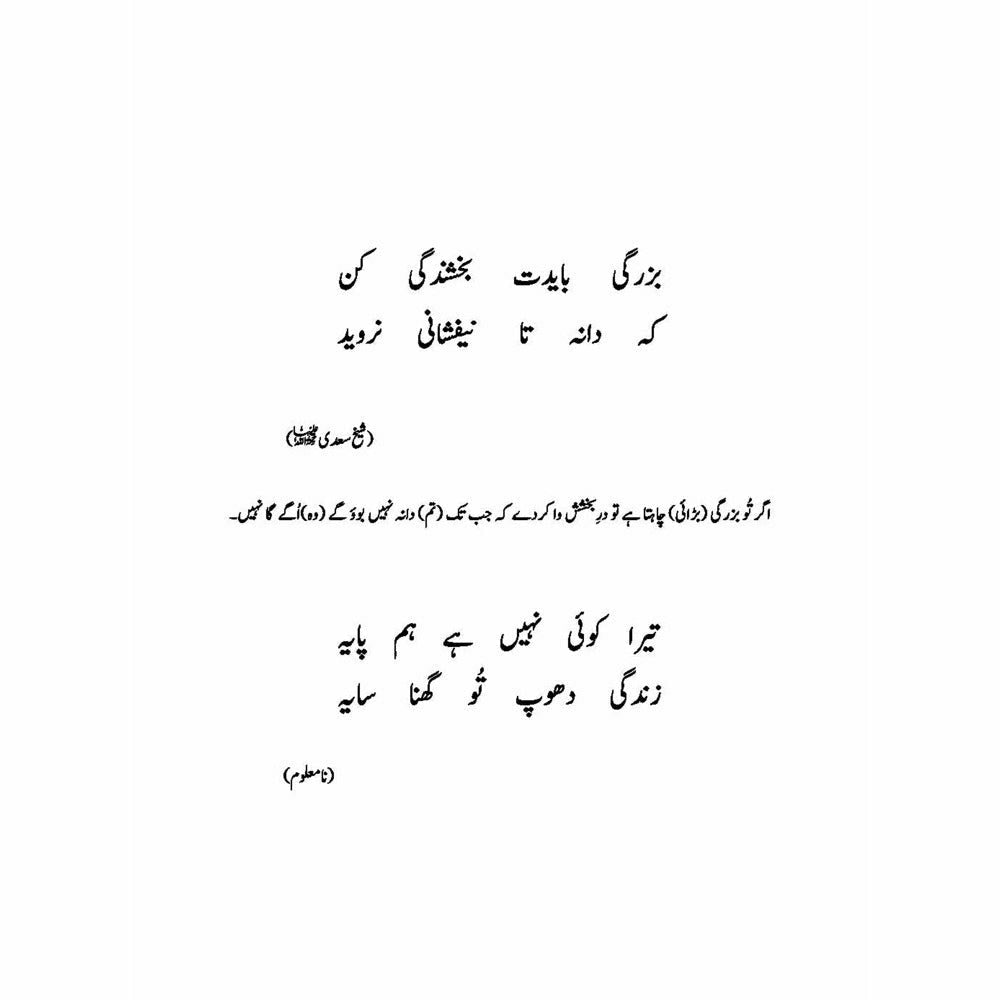 بزرگی بایدت بخشندگی کن
کہ دانہ تا نیفشانی نروید
(شیخ سعدی رحمۃ اللہ علیہ)
اگر تُو بزرگی (بڑائی) چاہتا ہے تو درِ بخشش وا کر دے کہ جب تک (تم) دانہ نہیں بوؤ گے (وہ) اُگے گا نہیں۔
تیرا کوئی نہیں ہے ہم پایہ
زندگی دھوپ تُو گھنا سایہ
(نامعلوم)